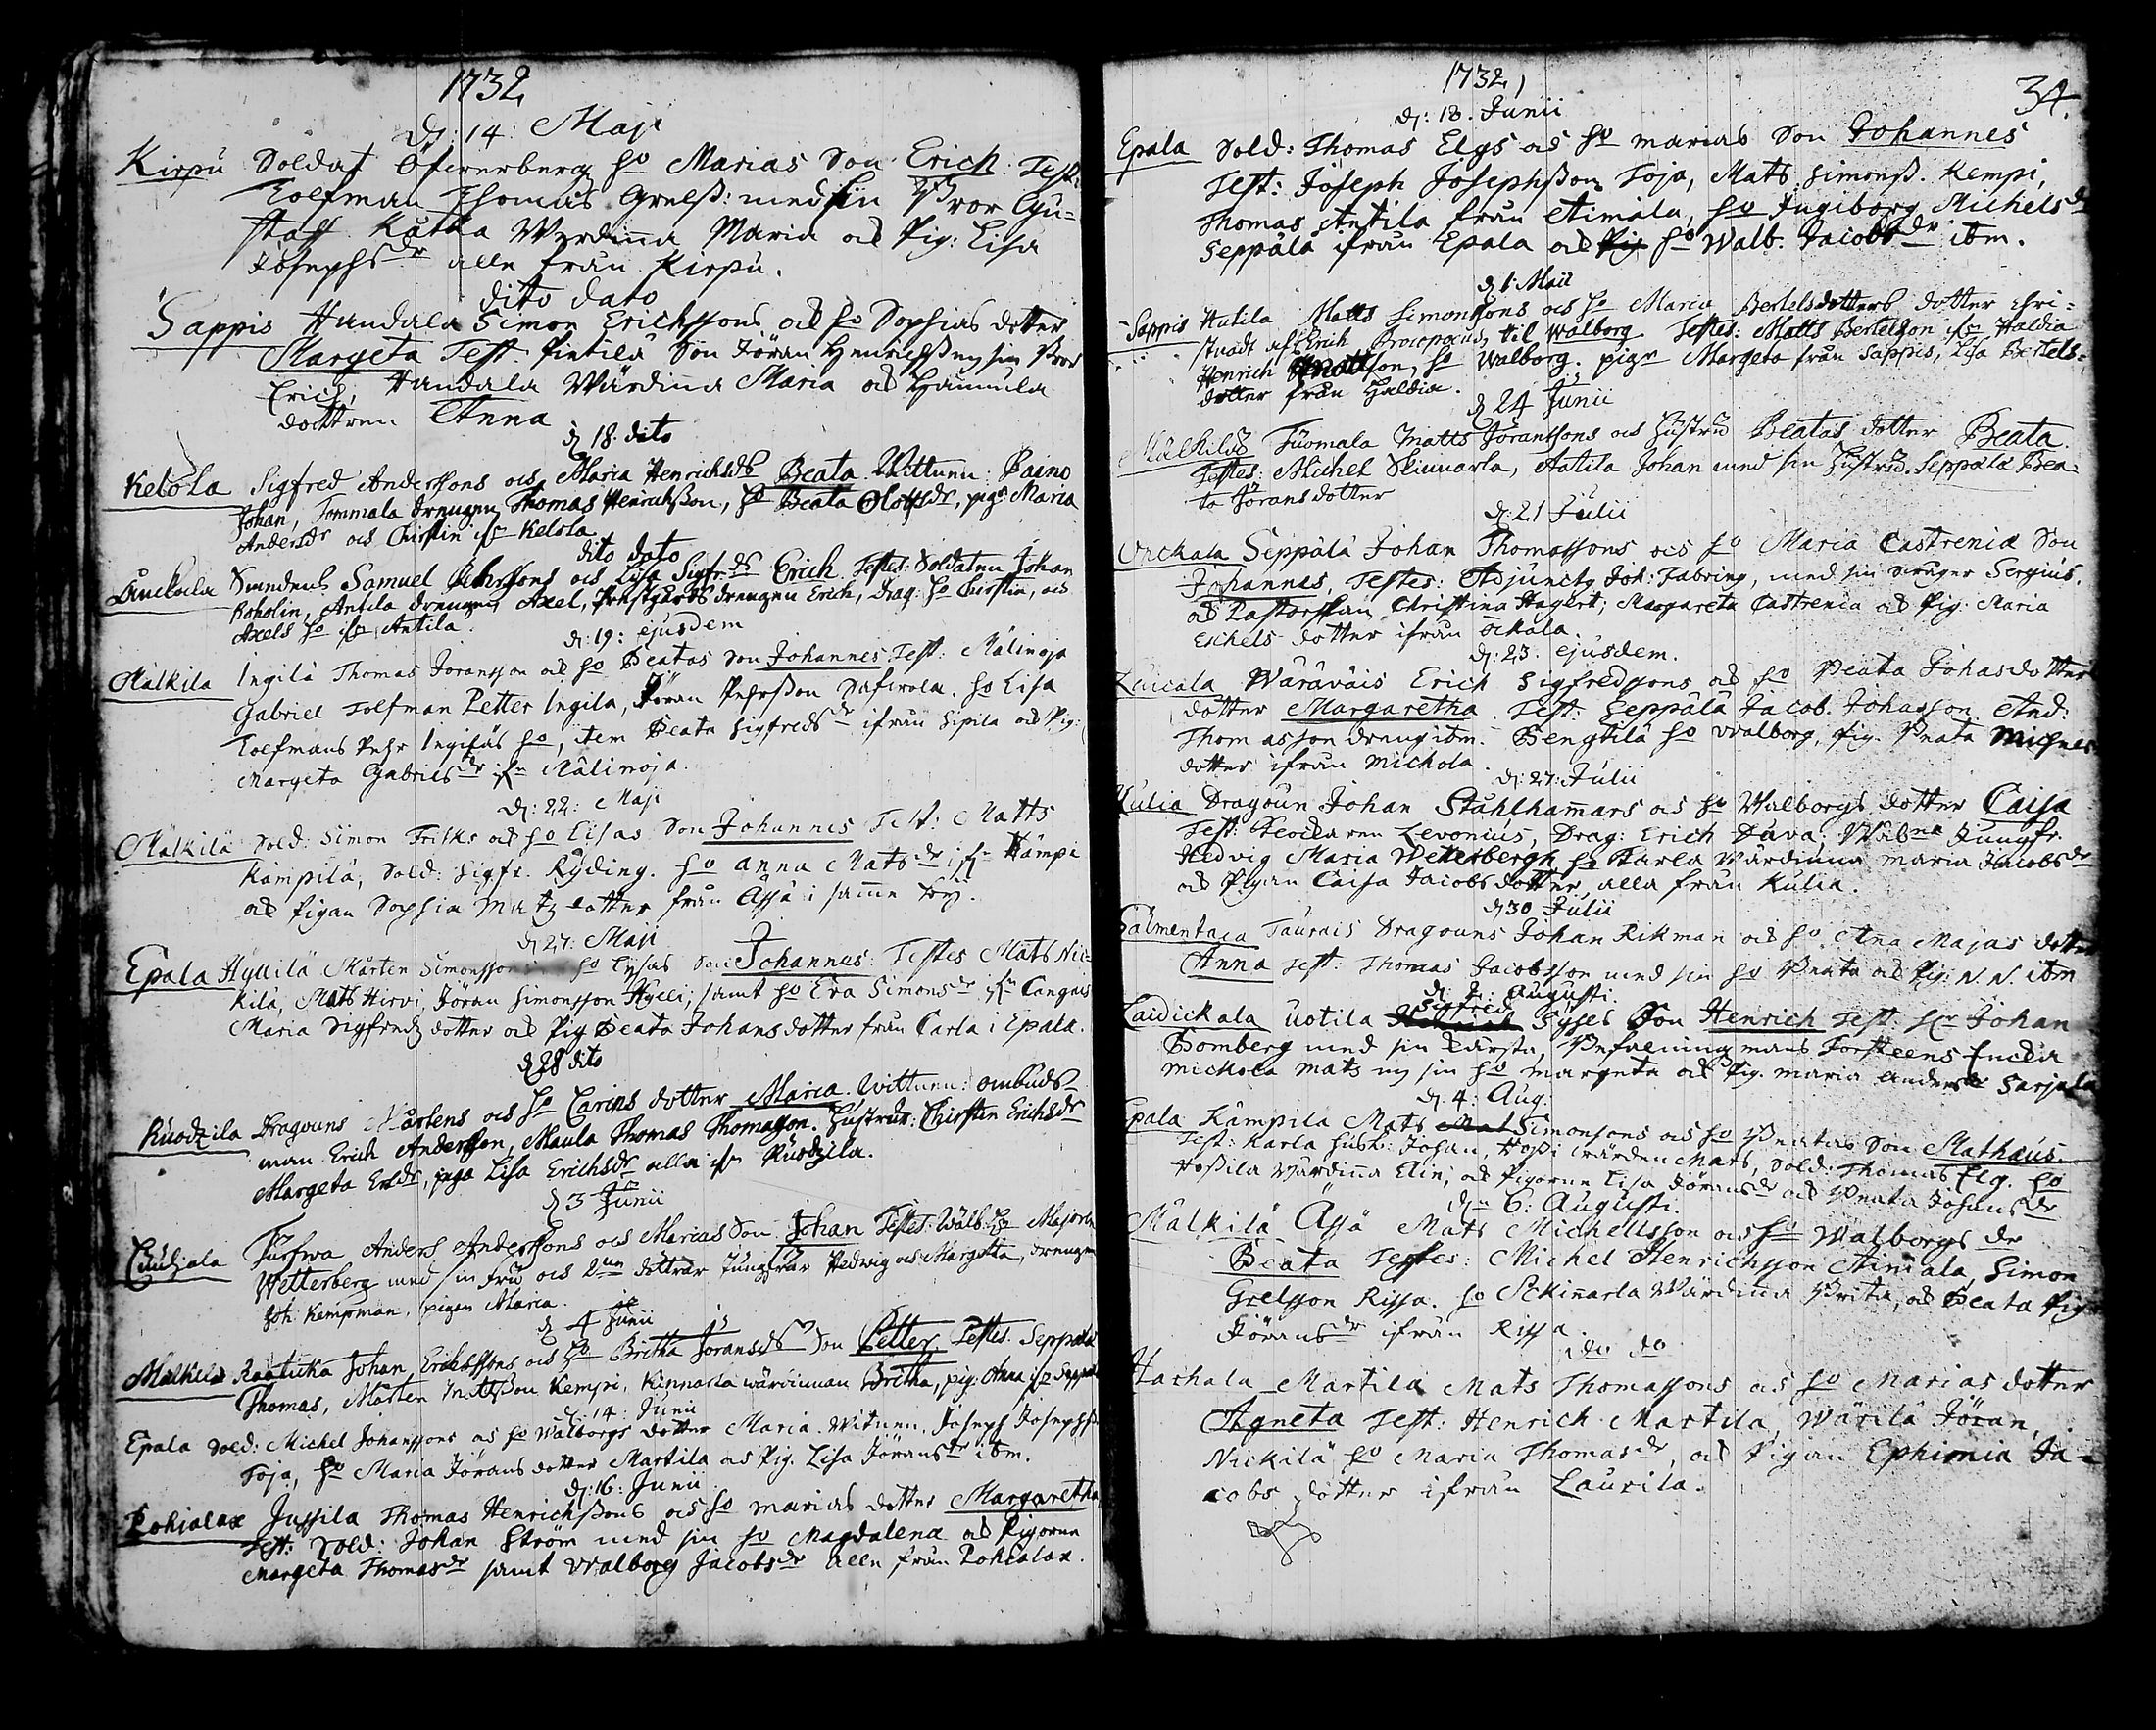 1732
d: 14: Maji
Kirpu Soldat Öfwererberg ho Marias Son Erich. Test:
Tolfman Thomas Grelss: med sin Bror Gu=
staff Kaitka Werdinna Maria och Pig: Lisa
Josephsdr alle från Kirpu.
dito dato
Sappis Handala Simon Erichssons och ho Sophias dotter
Margeta Test. Pintilä Son Jöran Henrichss: sin Bror
Erich, Handala Wärdinna Maria och Hannula
dottren Anna
d 18. dito
Kelola Sigfred Anderssons och Maria Henrichsdr Beata. Wittnen: Paino
Johan, Tommala drengen Thomas Henrichsson, ho Beata Olofsdr, pigr Maria
Andersdr och Chirstin ifr Kelola.
dito dato
Smedens Samuel och Lisa Sigfr:dr Erich Testes: Soldaten Johan
Roholin, Antila drengen Axel, Prestgårds drengen Erich, Drag: ho Chirstin, och
Axels ho ifr Antila.
d: 19: ejusdem
Mälkilä Ingilä Thomas Joransson och ho Beatas Son Johannes Test: Mälinoja
Gabriel Tolfman Petter Ingila, Jöran Pehrsson ho Lisa
Tolfmans Pehr Ingiläs ho, item Beata Sigfredsdr ifrån Sipila och Pig:
Margeta Gabrielsdr ifrn Mälinoja.
d: 22: Maji
Mälkilä Sold: Simon Frisks och ho Lisas Son Johannes Test: Matts
Kämpilä, Sold: Sigfr. Ryding. ho Anna Matsdr ifrn Kämpi
och Pigan Sophia Matz dotter från Assä i samme by.
d 27: Maji
Epala Hyllilä Mårten Simonsson ho Lysas Son Johannes: Testes Mats Nic=
kilä, Mats Hirvi, Jöran Simonsson Hylli, samt ho Eva Simonsdr ifrn Cangais
Maria Sigfredz dotter och Pig Beata Johansdotter från Carla i Epala.
d 28 dito
Ruodzila Dragouns Mårtens och ho Carins dotter Maria. Wittnen: ombuds-
man Erich Andersson, Maula Thomas Thomasson. Hustrur: Chirstin Erichsdr
Margeta Ersdr, piga Lisa Erichsdr alla ifr Ruodzila.
d 3 Junii
Anders Anderssons och Marias Son Johan Testes: Wälb: Hr Majoren
Wetterberg med sin fru och 2ne döttrar Jungfrur Hedwig och Margetta, drengen
Joh: Kempman, pigan Maria.
d 4 Junii
Mälkilä Raaticka Johan Erichssons och ho Britha Joransdrs Son Petter. Testes. Seppälä
Thomas, Mårten Mattsson Kempi, Kinnarla wärdinnan Britha, pig: Anna ifr Seppälä
d: 14: Junii
Epala Sold: Michel Johanssons och ho Walborgs dotter Maria. Witnen. Joseph Josephss
Toja, ho Maria Jörans dotter Martila och Pig. Lisa Jöransdr ibm.
d: 16: Junii
Pohialax Jussila Thomas Henrichssons och ho Marias dotter Margaretha
Test: Sold: Johan Ström med sin ho Magdalena och Pigorne
Margeta Thomasdr samt Walborg Jacobsdr alle från Pohialax.
1732
34.
d: 18. Junii
Epala Sold: Thomas Elgs och ho Marias Son Johannes
Test: Joseph Josephsson Toja, Mats Simonss. Kempi,
Thomas Antila från Aimala, ho Ingiborg Michelsdr
Seppälä ifrån Epala och Pig ho Walb. Jacobsdr ibm.
d 1. Maii
Sappis Hutila Matts Simonssons och ho Maria Bertelsdotters dotter Chri=
stnadt af Erich Procopæus, til Walborg Testes: Matts Bertelsson ifr Haldia
Henrich Mattsson, ho Walborg. pigr Margeta från Sappis, Lisa Bertels=
dotter från Haldia.
d 24 Junii
Tuomala Matts Joranssons och Hustru Beatas dotter Beata.
Testes: Michel Skinnarla, Antila Johan med sin Hustru. Seppälä Bea=
ta Jöransdotter
d: 21 Julii
Onckala Seppälä Johan Thomassons och ho Maria Castrenia Son
Johannes, Testes: Adjuncty Joh: Fabring, med sin swåger Sergius,
och Pastorskan Christina Hagert; Margareta Castrenia och Pig: Maria
Eschels dotter ifrån Onckala.
d: 23. ejusdem.
Laicala Wäräwäis Erich Sigfredssons och ho Beata Johasdotter
dotter Margaretha. Test: Seppälä Jacob. Johasson And:
Thomasson dreng ibm. Bengtilä ho Walborg, Pig. Beata Michels
dotter ifrån Michola.
d: 27: Julii
Kulia Dragoun Johan Stahlhammars och ho Walborgs dotter Caisa
Test: Klockaren Levonius, Drag: Erich Duva, Wälbne Jungfr:
Hedvig Maria Wetterbergh ho Karla Wärdinna Maria Jacobsdr
och Pigan Caisa Jacobsdotter, alla från Kulia.
d 30 Julii
Salmentaca Taurais Dragouns Johan Rikman och ho Ana Majas dotter
Anna Test: Thomas Jacobsson med sin ho Beata och Pig: N. N. ibm
d: 2: Augusti.
Laidickala Uotila Sigfred Syses Son Henrich Test: Hr Johan
Bomberg med sin Kärsta, Befalningsmans Torsteens Encka
Mickola Mats m sin ho Margeta och Pig. Maria Andersdr Sarjala
d: 4: Aug:
Epala Kämpilä Mats Mat Simonsons och ho Beatas Son Mathæus
Test: Karla hustr: Johan, Hossi wärden Mats, Sold: Thomas Elg. ho
Hossila Wärdinna Elin, och Pigorne Lisa Jöransdr och Beata Johansdr
dn 6: Augusti.
Mälkilä Assä Mats Michellsson och ho Walborgs dr
Beata Testes: Michel Henrichsson Aimala, Simon
Grelsson Rissa. ho Skinnarla Wärdinna Brita, och Beata Pig
Jöransdr ifrån Rissa.
do do
Hachala Martila Mats Thomassons och ho Marias dotter
Agneta Test: Henrich Martila, Wärilä Jöran,
Nickilä ho Maria Thomasdr, och Pigan Ephimia Ja-
cobs dotter ifrån Laurila.